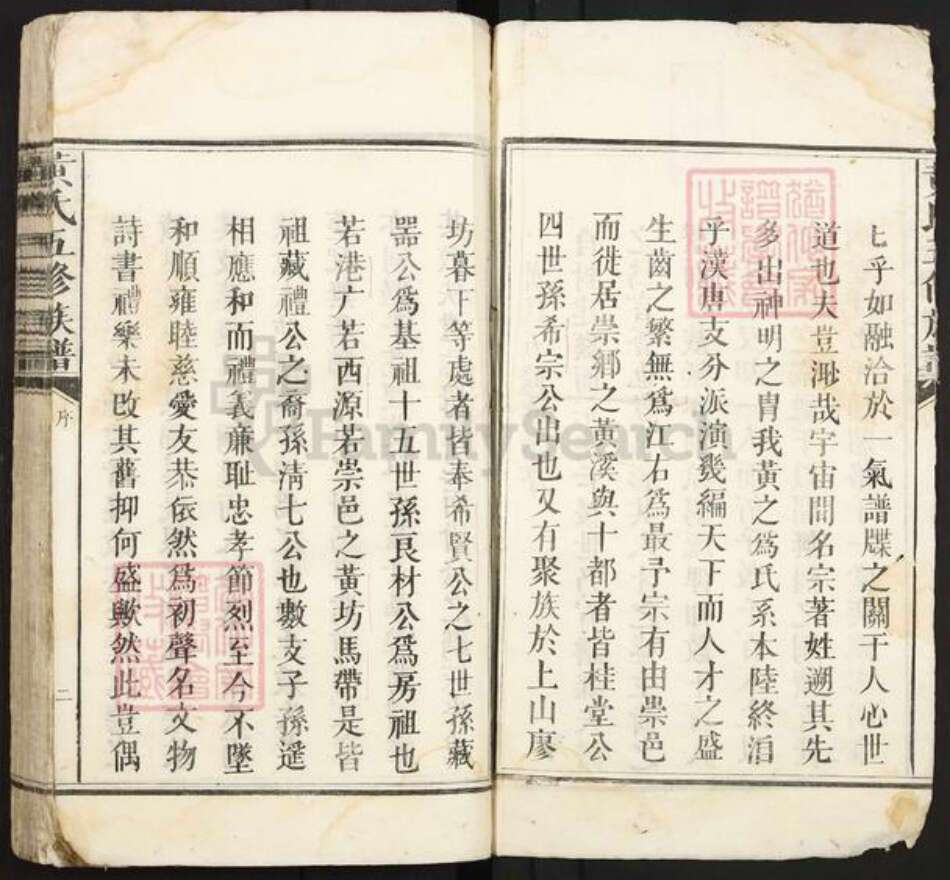 乎如融洽於一氣譜牒之關于人心世
道也夫豈渺哉宇宙間名宗著姓遡其先
多出神明之胄我黃之爲氏系本陸終洎
乎漢唐支分派演幾編天下而人才之盛
生齒之繁無爲江右爲最予宗有由崇邑
而徙居崇鄉之黃溪與十都者皆桂堂公
四世孫希宗公出也又有聚族於上山廖
坊暮下等處者皆奉希賢公之七世孫藏
器公爲基祖十五世孫良材公爲房祖也
若港广若西源若崇邑之黃坊馬帶是皆
祖藏禮公之裔孫淸七公也數支子孫遥
相應和而禮義廉耻忠孝節烈至今不墜
和順雍睦慈愛友恭依然爲初聲名文物
詩書禮樂未改其舊抑何盛歟然此豈偶
黃氏五修族譜
序
二
FamilySearch